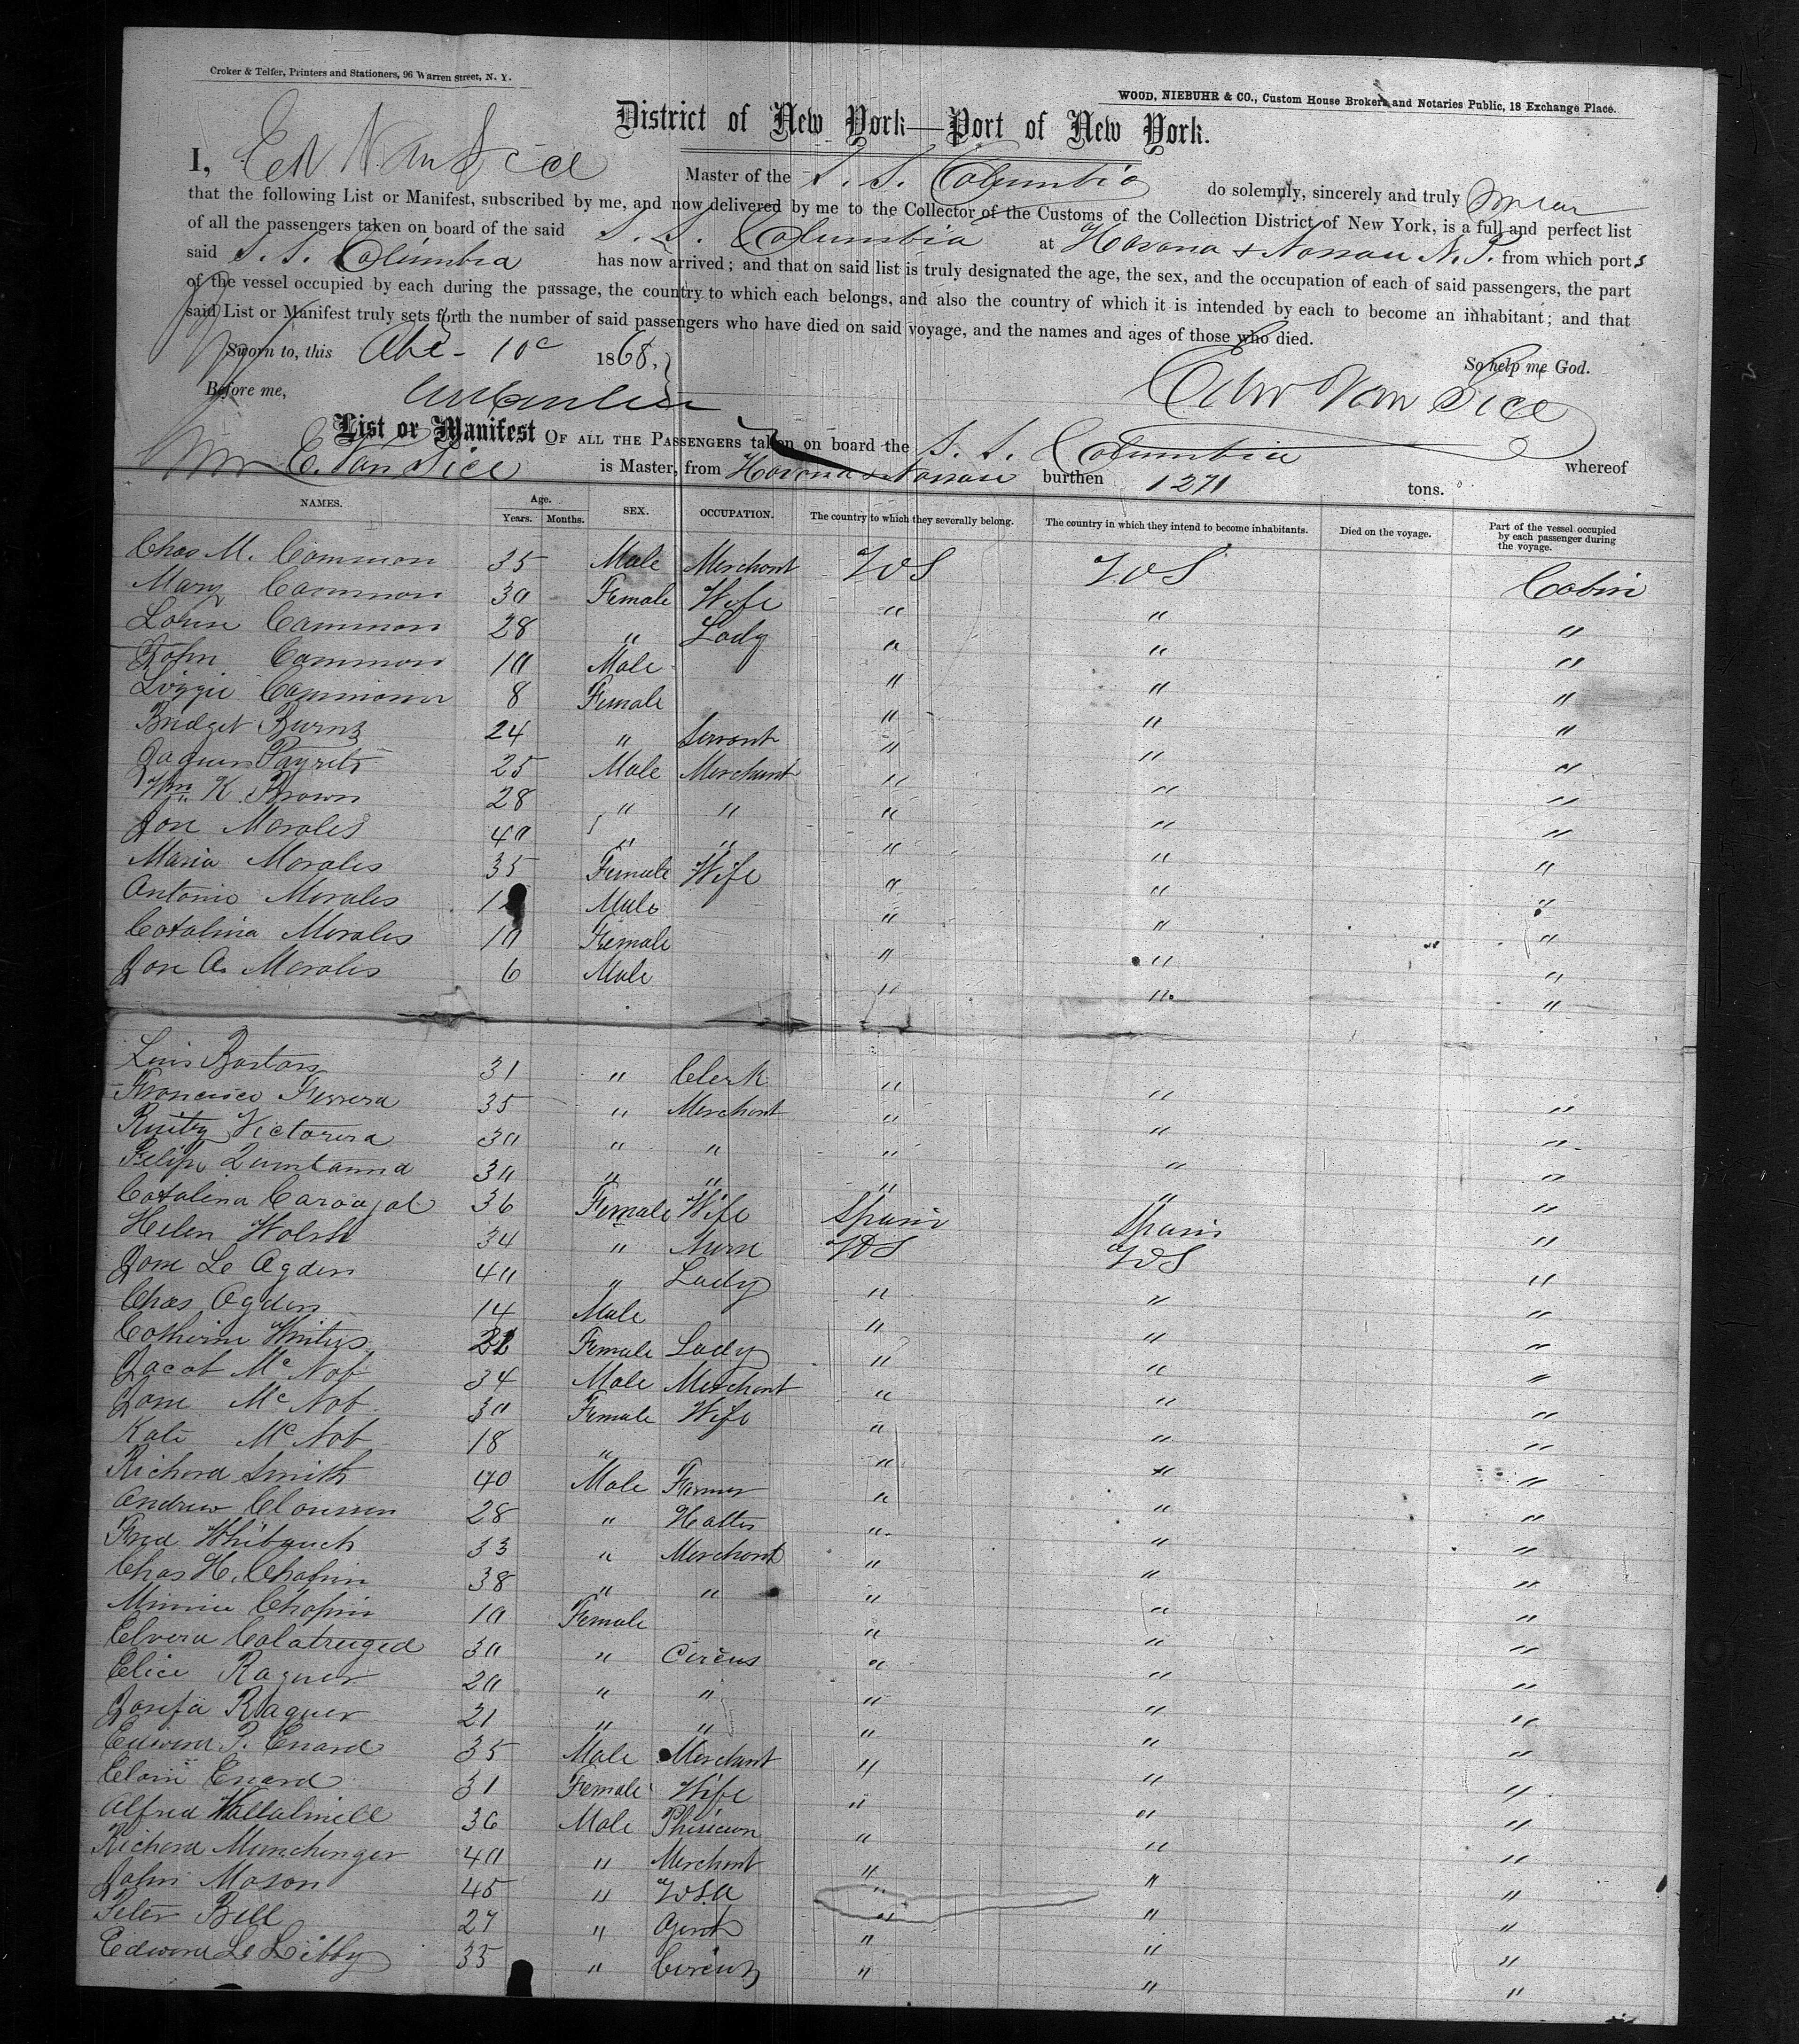 Croker & Telfer, Printers and Stationers, 96 Warren Street, N. Y.
WOOD, NIEBUHR & CO., Custom House Brokers and Notaries Public, 18 Exchange Place.
District of New York—Port of New York.
I, Edw Van Sice Master of the S. S. Columbia do solemnly, sincerely and truly swear
that the following List or Manifest, subscribed by me, and now delivered by me to the Collector of the Customs of the Collection District of New York, is a full and perfect list
of all the passengers taken on board of the said S. S. Columbia at Havana & Nassau N. P. from which ports
said S. S. Columbia has now arrived; and that on said list is truly designated the age, the sex, and the occupation of each of said passengers, the part
of the vessel occupied by each during the passage, the country to which each belongs, and also the country of which it is intended by each to become an inhabitant; and that
said List or Manifest truly sets forth the number of said passengers who have died on said voyage, and the names and ages of those who died.
Sworn to, this 10 1868. So help me God.
Before me, Edw Van Sice
List or Manifest OF ALL THE PASSENGERS taken on board the S. S. Columbia whereof
E. Van Sice is Master, from Havana & Nassau burthen 1271 tons.
NAMES. Age. Years. Months. SEX. OCCUPATION. The country to which they severally belong. The country in which they intend to become inhabitants. Died on the voyage. Part of the vessel occupied by each passenger during the voyage.
Chas M. Cammon 35 Male Merchant US US Cabin
Mary Cammon 30 Female Wife " " "
Cammon 28 " Lady " " "
John Cammon 10 Male " " "
Lizzie Cammon 8 Female " " "
Bridget Burns 24 " Servant " " "
25 Male Merchant " " "
Wm K. Brown 28 " " " " "
Jose Morales 40 " " " " "
Maria Morales 35 Female Wife " " "
Antonio Morales Male " " "
Catalina Morales 10 Female " " "
Jose A. Morales 6 Male " " "
Luis 31 " Clerk " " "
Francisco Ferrera 35 " Merchant " " "
30 " " " " "
Felipe 30 " " " " "
Catalina Carvajal 36 Female Wife Spain Spain "
Helen Walsh 34 " Nurse US US "
Jane Le Agden 40 " Lady " " "
Chas Agden 14 Male " " "
Catherine Female Lady " " "
Jacob McNab 34 Male Merchant " " "
Jane McNab 30 Female Wife " " "
Kate McNab 18 " " " "
Richard Smith 40 Male Farmer " " "
Andrew 28 " Hatter " " "
Fred 33 " Merchant " " "
Chas H. Chapin 38 " " " " "
Minnie Chapin 10 Female " " "
Elvera 30 " Circus " " "
Elice Raguer 20 " " " " "
Josefa Raguer 21 " " " " "
Edward P. Enard 35 Male Merchant " " "
Enard 31 Female Wife " " "
Alfred 36 Male Phisician " " "
Richard Munchinger 40 " Merchant " " "
John Mason 45 " USA " " "
Peter Bell 27 " Agent " " "
Edward Le Libby 35 " Circus " " "